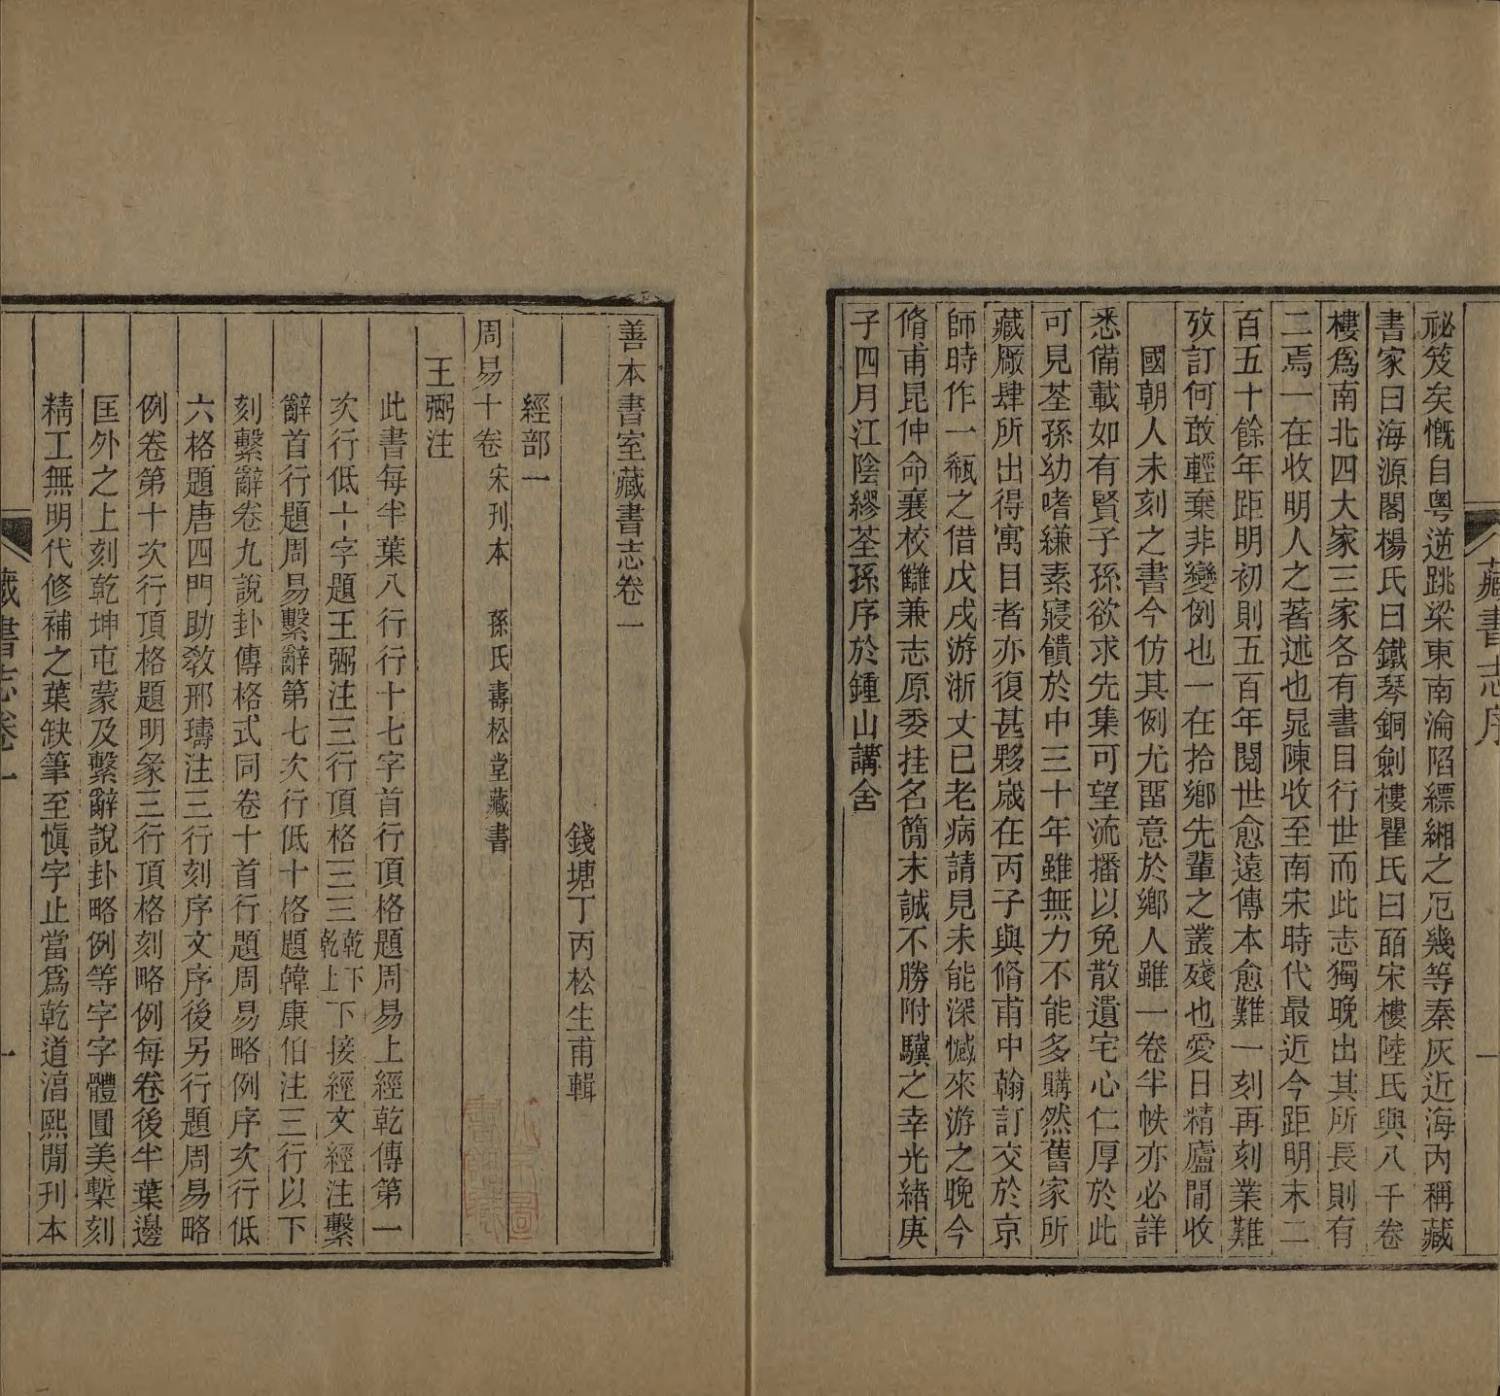 祕笈矣慨自粵逆跳梁東南淪陷縹緗之厄幾等秦灰近海內稱藏
書家曰海源閣楊氏曰鐵琴銅劍樓瞿氏曰皕宋樓陸氏與八千卷
樓爲南北四大家三家各有書目行世而此志獨晚出其所長則有
二焉一在收明人之著述也晁陳收至南宋時代最近今距明末二
百五十餘年距明初則五百年閱世愈遠傳本愈難一刻再刻業難
攷訂何敢輕棄非變例也一在拾鄉先輩之叢殘也愛日精廬間收
國朝人未刻之書今仿其例尤畱意於鄉人雖一卷半帙亦必詳
悉備載如有賢子孫欲求先集可望流播以免散遺宅心仁厚於此
可見荃孫幼嗜縑素寢饋於中三十年雖無力不能多購然舊家所
藏廠肆所出得寓目者亦復甚夥歲在丙子與脩甫中翰訂交於京
師時作一瓻之借戊戌游浙丈已老病請見未能深憾來游之晚今
脩甫昆仲命襄校讎兼志原委挂名簡末誠不勝附驥之幸光緒庚
子四月江陰繆荃孫序於鍾山講舍
藏書志序
一
善本書室藏書志卷一
錢塘丁丙松生甫輯
經部一
周易十卷 宋刊本 孫氏壽松堂藏書
王弼注
此書每半葉八行行十七字首行頂格題周易上經乾傳第一
次行低十字題王弼注三行頂格三三乾下乾上下接經文經注繫
辭首行題周易繫辭第七次行低十格題韓康伯注三行以下
刻繫辭卷九說卦傳格式同卷十首行題周易略例序次行低
六格題唐四門助敎邢璹注三行刻序文序後另行題周易略
例卷第十次行頂格題明彖三行頂格刻略例每卷後半葉邊
匡外之上刻乾坤屯蒙及繫辭說卦略例等字字體圓美槧刻
精工無明代修補之葉缺筆至愼字止當爲乾道淳熙閒刊本
藏書志卷一
一